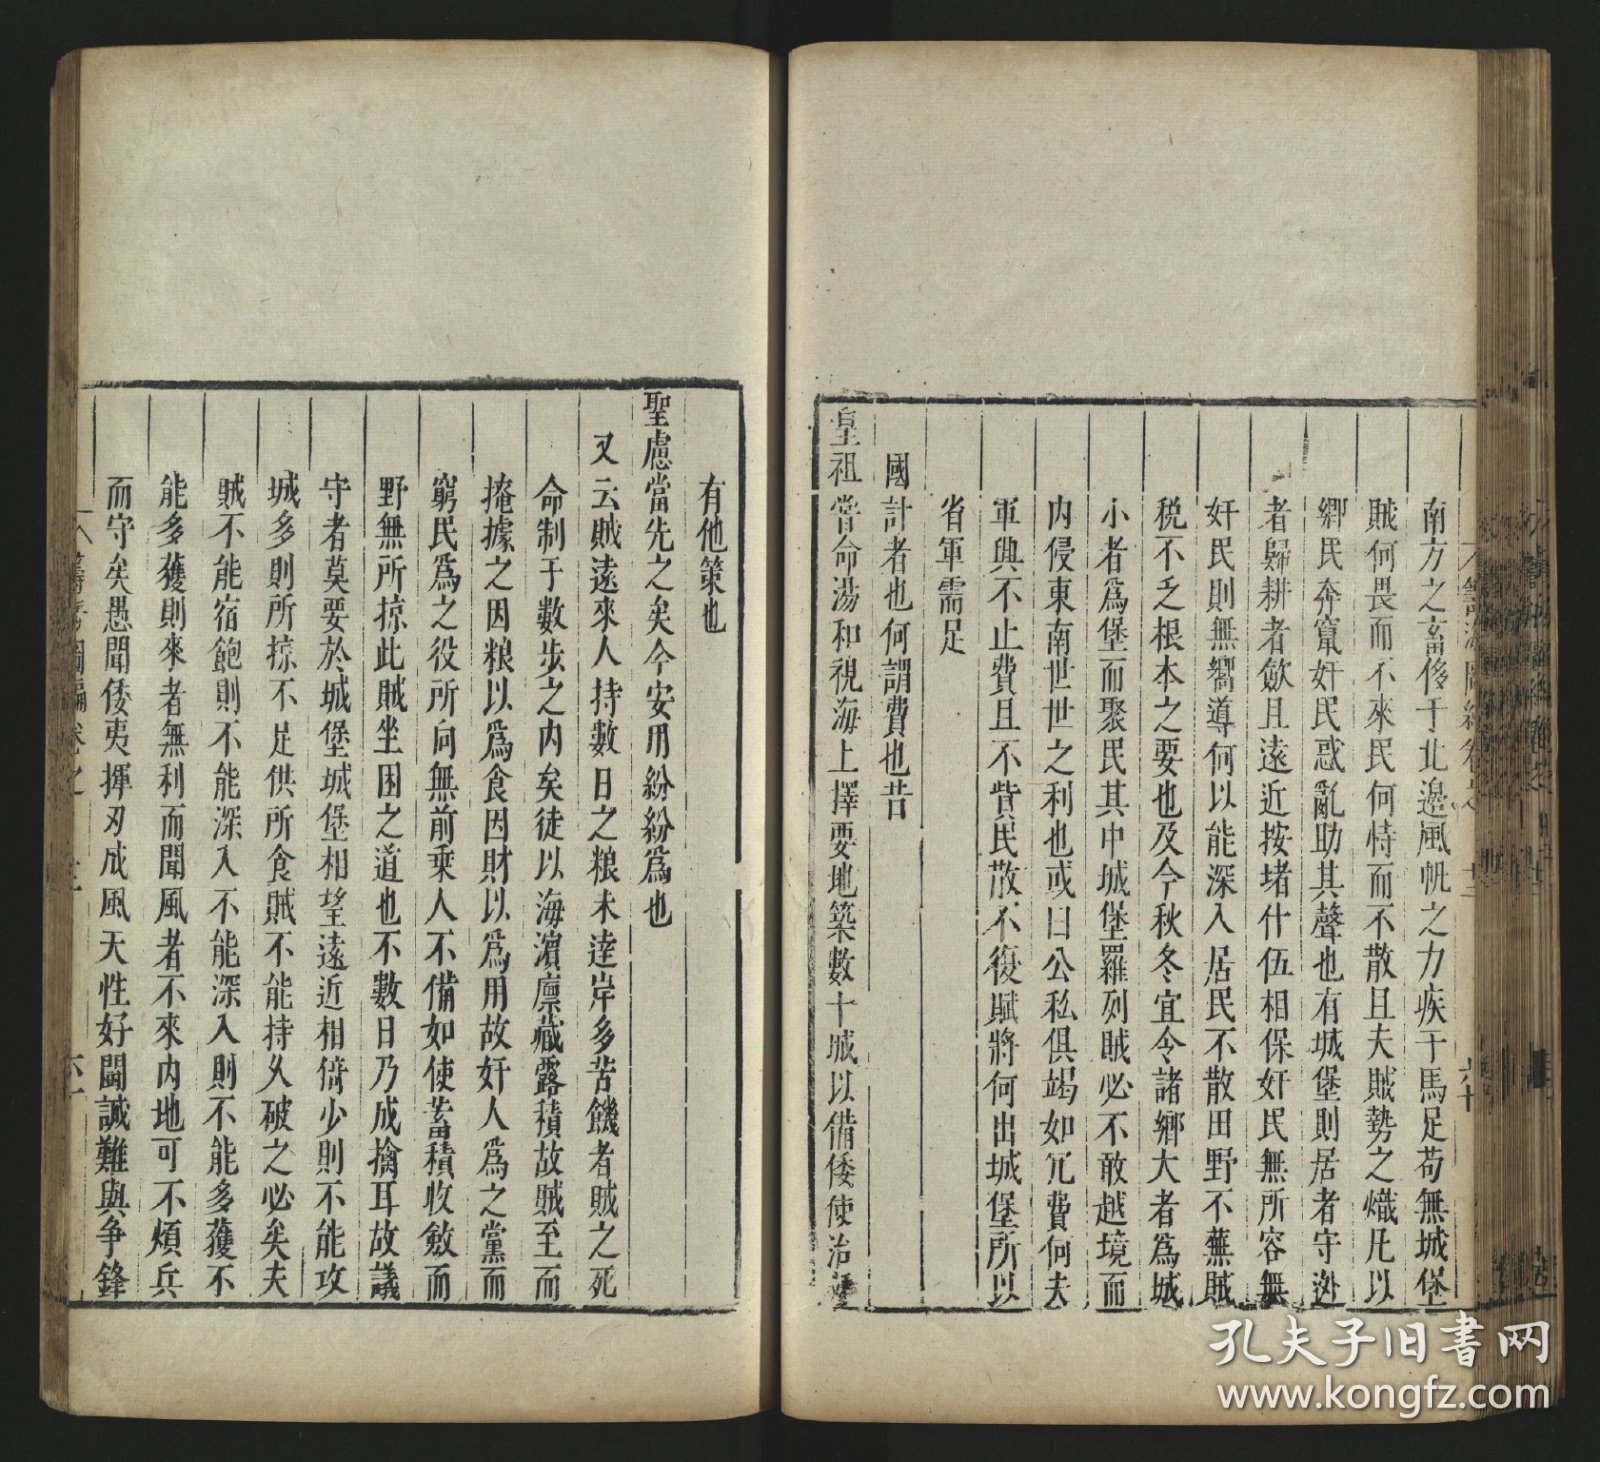 南方之畜侈于北邊風帆之力疾于馬足苟無城堡
賊何畏而不來民何恃而不散且夫賊勢之熾凡以
鄉民奔竄奸民惑亂助其聲也有城堡則居者守迯
者歸耕者歛且遠近按堵什伍相保奸民無所容無
奸民則無嚮導何以能深入居民不散田野不蕪賊
稅不乏根本之要也及今秋冬宜令諸鄉大者為城
小者為堡而聚民其中城堡羅列賊必不敢越境而
內侵東南世世之利也或曰公私俱竭如冗費何夫
軍興不止費且不貲民散不復賦將何出城堡所以
省軍需足
國計者也何謂費也昔
皇祖嘗命湯和視海上擇要地築數十城以備倭使治
有他策也
聖慮當先之矣今安用紛紛為也
又云賊遠來人持數日之粮未達岸多苦饑者賊之死
命制于數步之內矣徒以海濵廪藏露積故賊至而
掩據之因粮以為食因財以為用故奸人為之黨而
窮民為之役所向無前乗人不備如使蓄積收斂而
野無所掠此賊坐困之道也不數日乃成擒耳故議
守者莫要於城堡城堡相望遠近相倚少則不能攻
城多則所掠不足供所食賊不能持久破之必矣夫
賊不能宿飽則不能深入不能深入則不能多獲不
能多獲則來者無利而聞風者不來內地可不煩兵
而守矣愚聞倭夷揮刃成風天性好鬪誠難與争鋒
籌海圖編卷之
孔夫子旧书网
www.kongfz.com